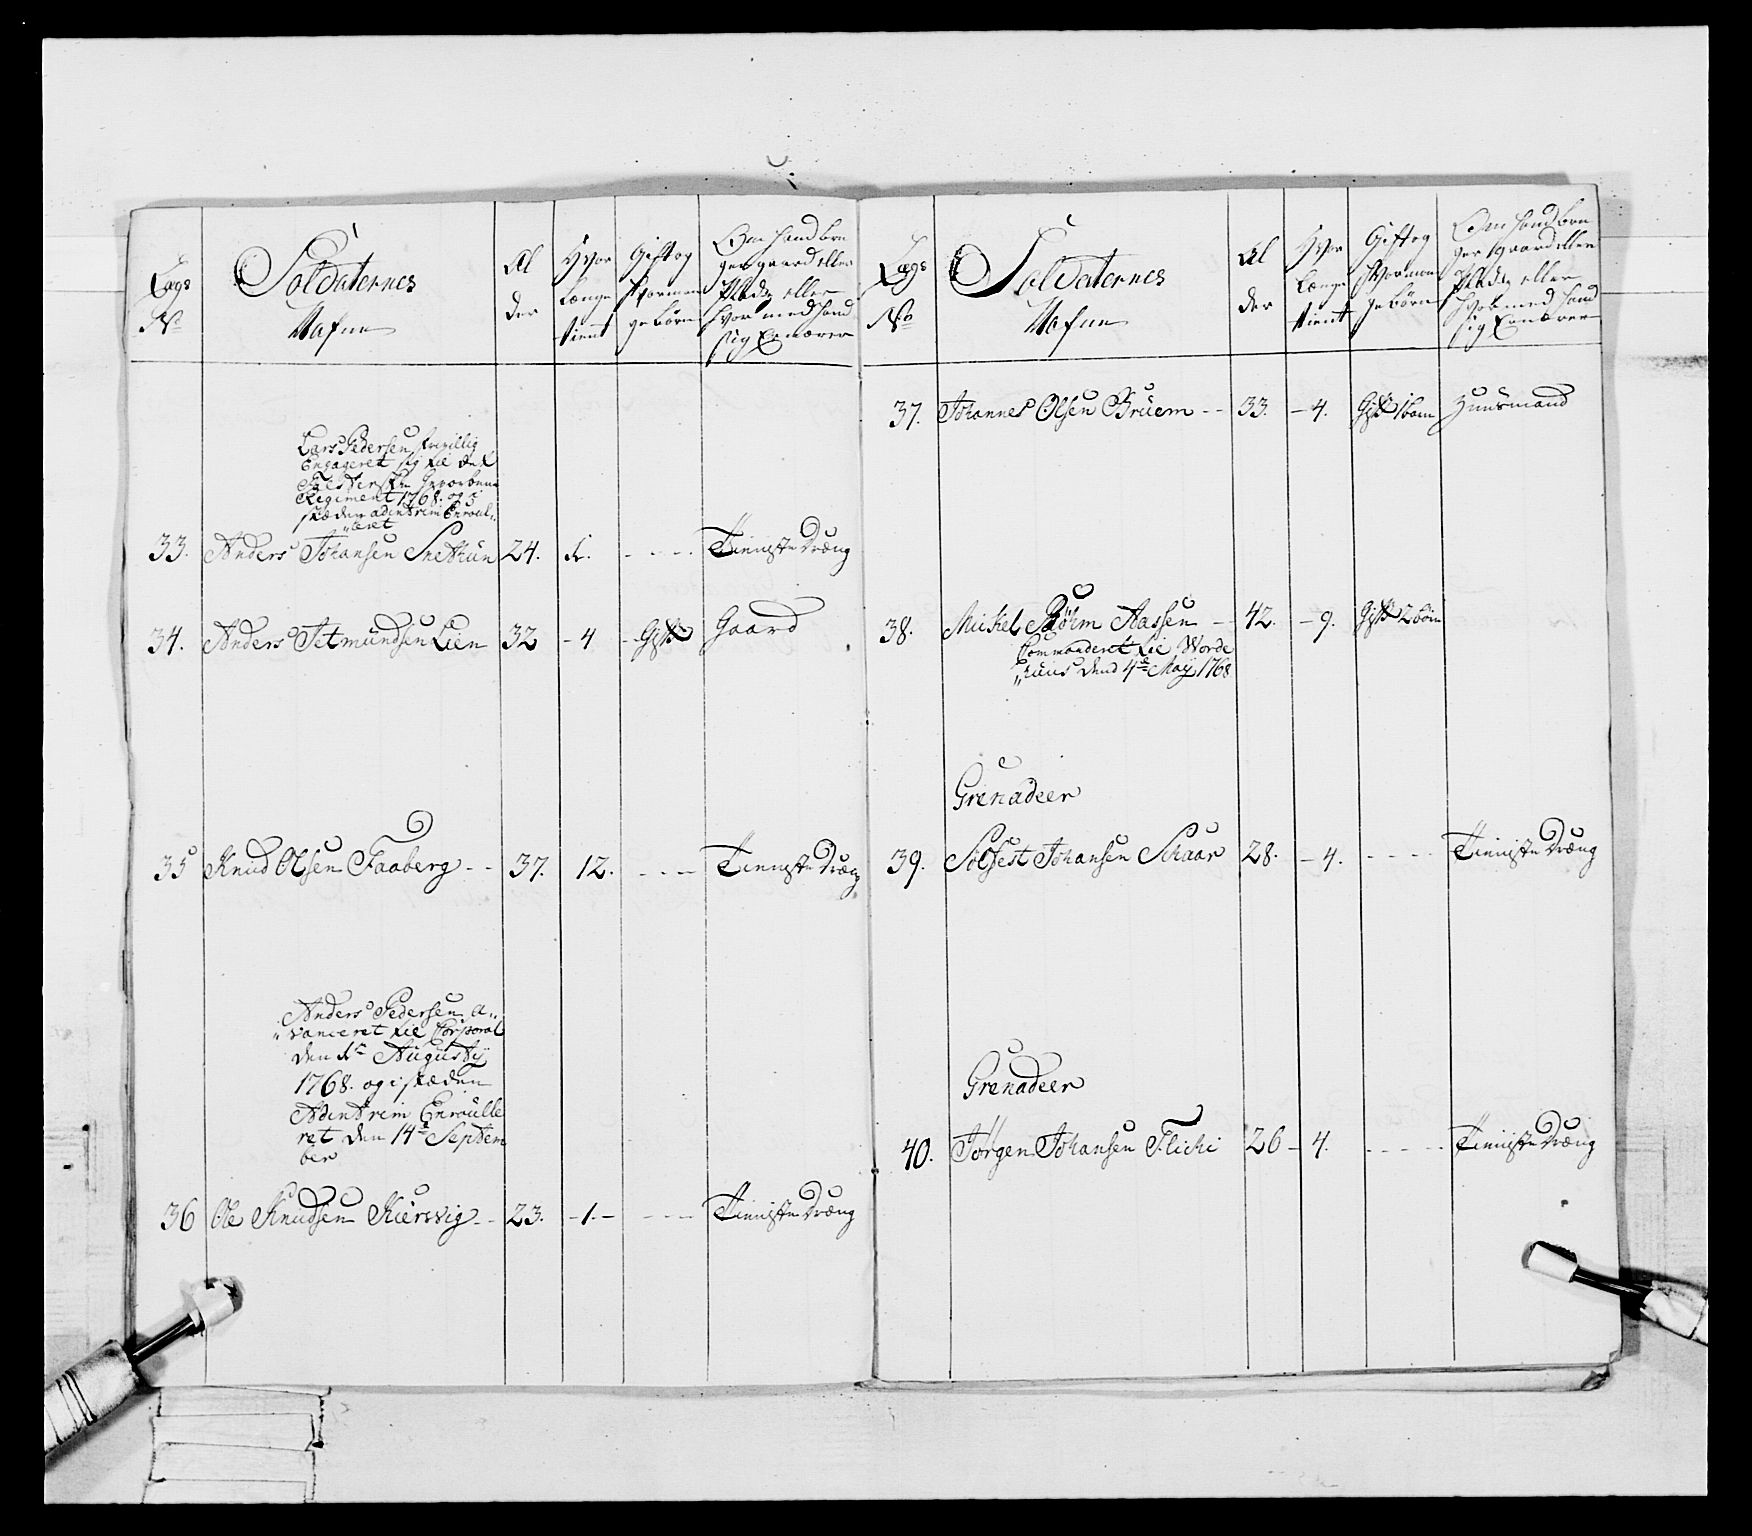 Lægs No
Soldaternes Nafne
Al der
Hvor Længe tient
Gift og Hvormange børn
Om hand bru
ger gaard eller
Plads eller
hvormed hand
sig Ernærer
Lars Pedersen frivillig
Engageret sig til det
Regiment 1768. og i
stæden adentrim Enroul„
„leret
33. Anders Johansen Snethun 24. 1. - - - - Tieniste Dræng
34. Anders Tetmundsen Lien 32 - 4 - Gift Gaard
35 Knud Olsen Faaberg - - 37. 12. - - - Tieniste Dræng
Anders Pedersen a„
„vanceret til Corporal
den 1te Augustij
1768. og i stæden
Adentrim Enroulle
ret den 14de Septem
ber
36 Ole Knudsen Kiersvig - - 23. - 1. - - - - Tieniste Dræng
Lægs No
Soldaternes Nafne
Al der
Hvor Længe tient
Gift og Hvormange børn
Om hand bru
ger gaard eller
Plads eller
hvormed hand
sig Ernærer
37. Johannes Olsen Bruem - - 33. - 4. Gift 1 barn Huusmand
38. Mickel Bøhm Aassen - - 42. - 9. Gift 2 børn
Commanderet til Worde
„huus dend 4de Maij 1768
Grenadeer
39. Solfest Johansen Schaar 28. - 4. - - - - Tieniste Dræng
Grenadeer
40. Jørgen Johansen Flichi 26 - 4. - - - - - Tieniste Dræng